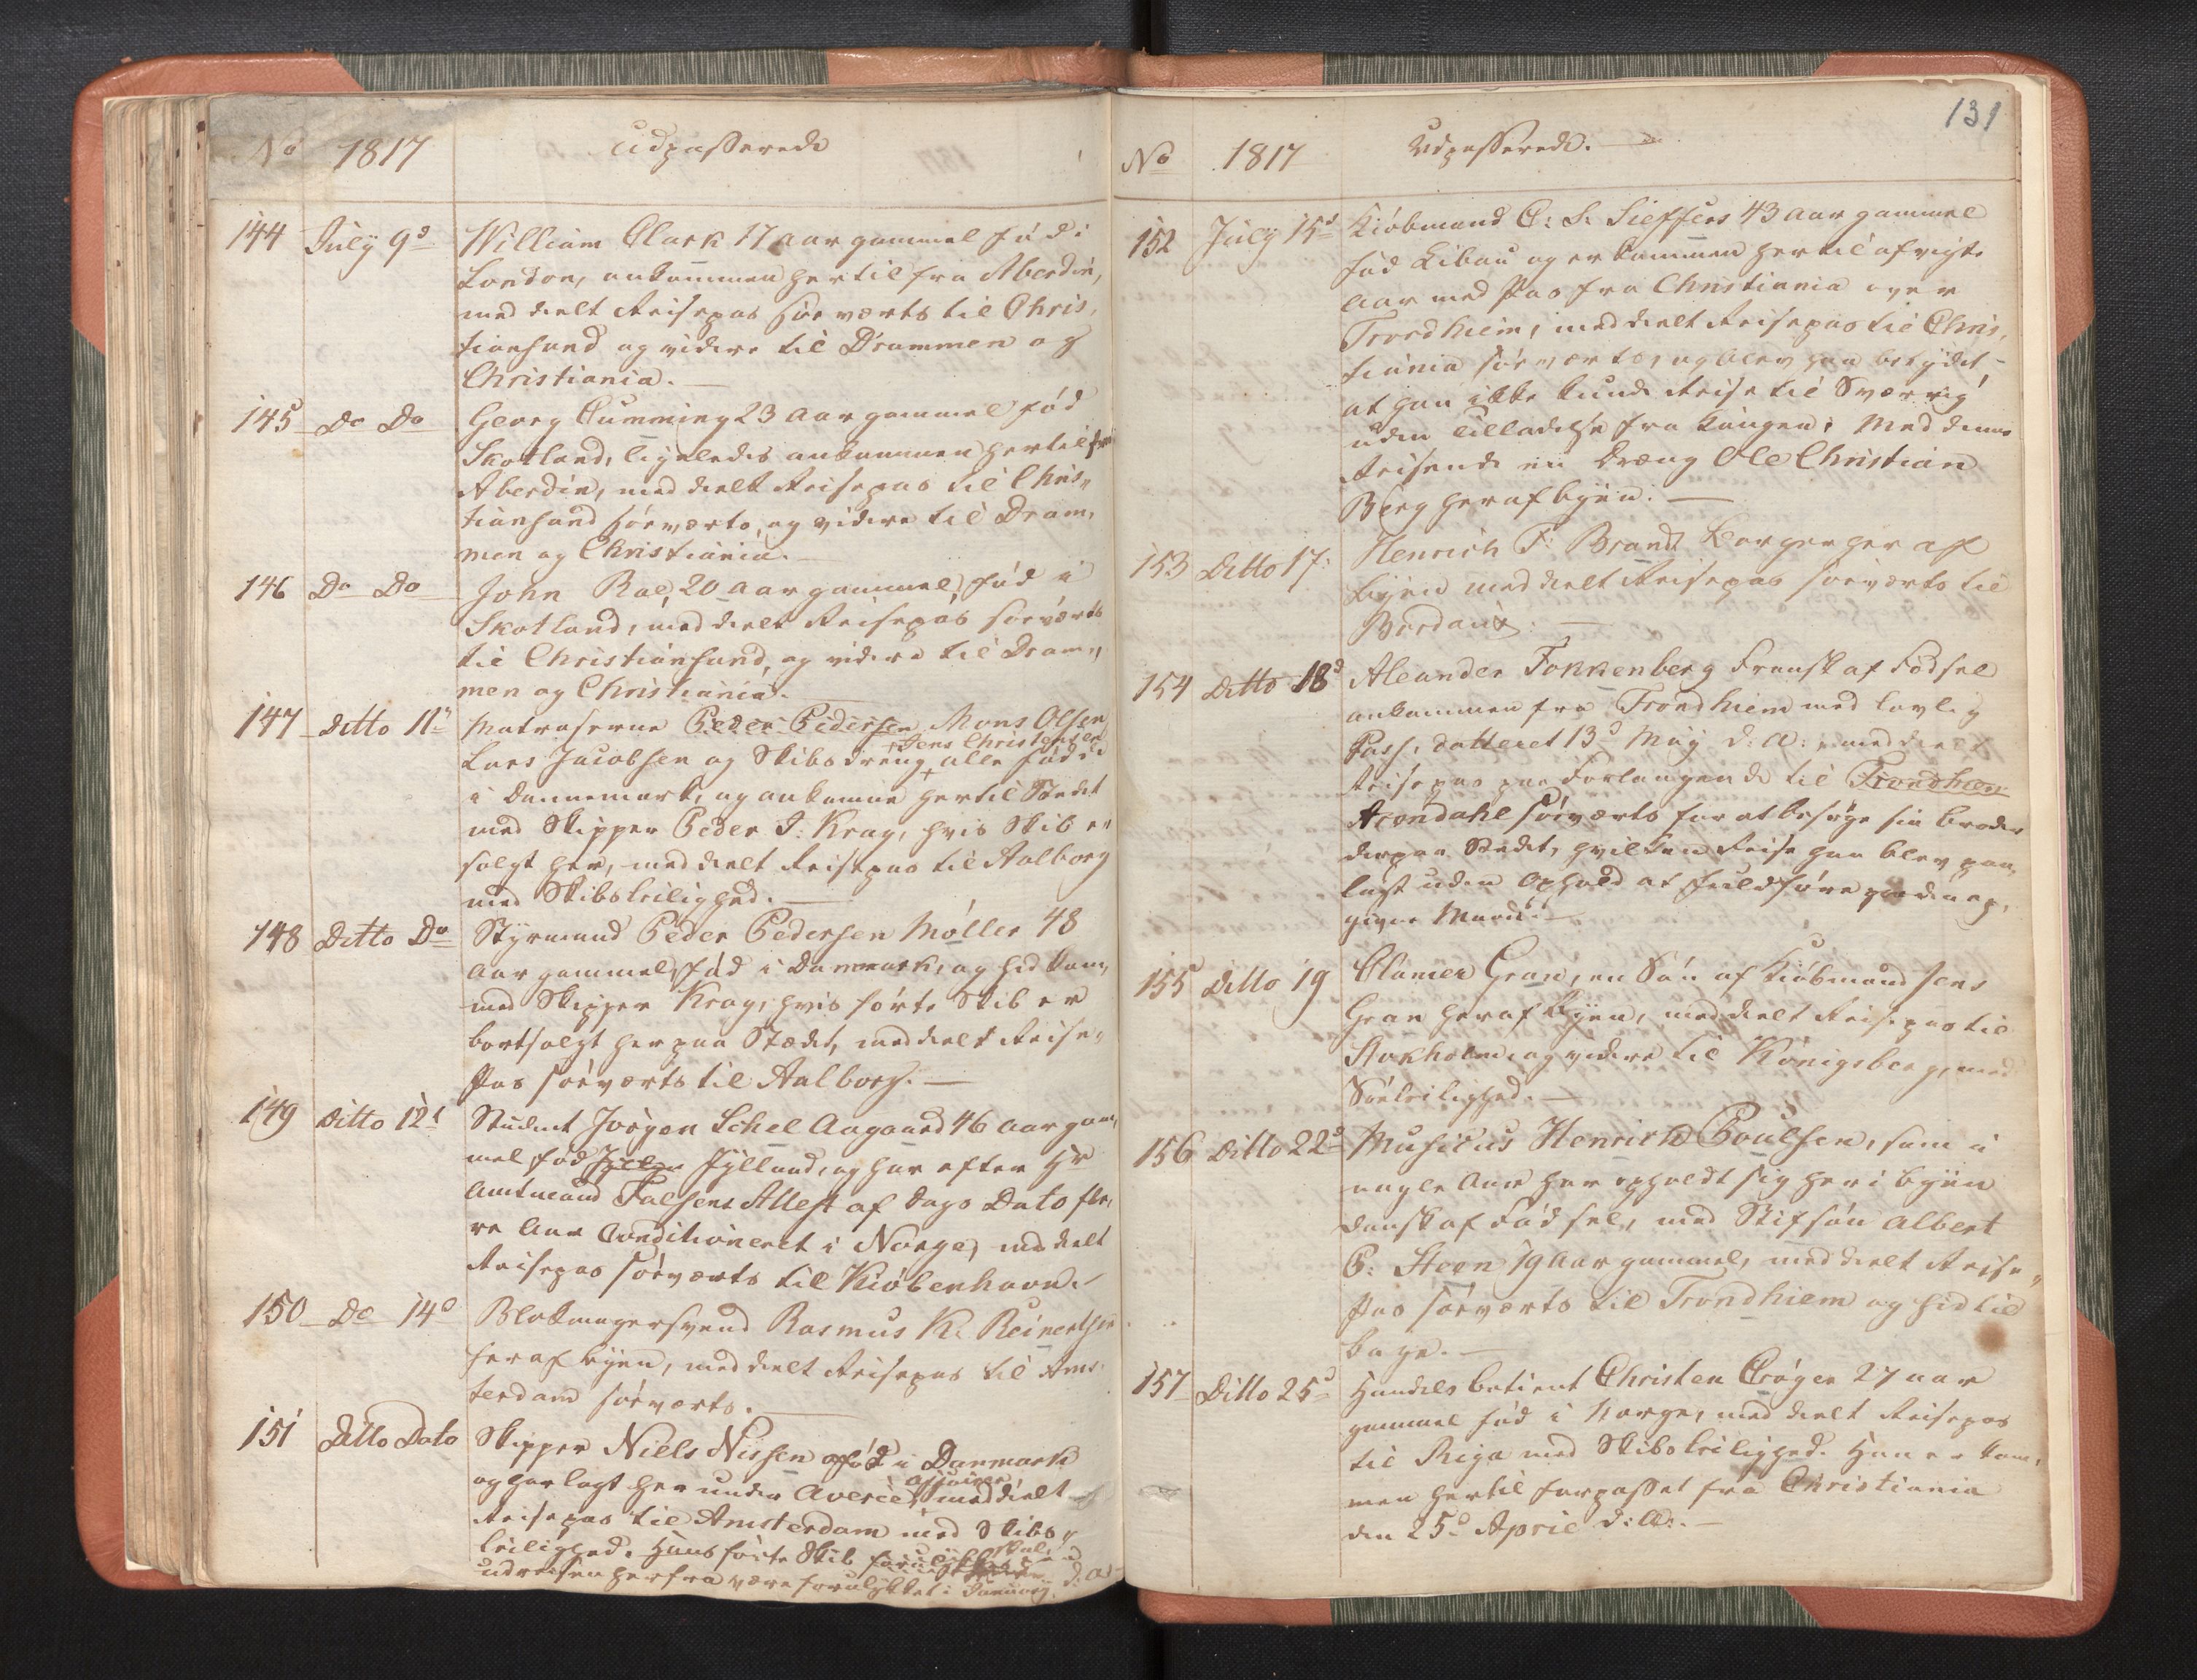 No 1817 Udpasserede
144 July 9d William Clark 17 aar gammel fød i
London, ankommen hertil fra Aberdin,
meddeelt Reisepas søeværts til Chris,
tiansund og videre til Drammen og
Christiania.
145 Do Do Georg Cumming 23 aar gammel fød
Skotland, ligeledes ankommen hertil fra
Aberdin, meddeelt Reisepas til Chris,,
tiansand søeværts, og videre til Dram,
men og Christiania.
146 Do Do John Rae 20 aar gammel, fød i
Skotland, meddeelt Reisepas søeværts
til Christiansund, og videre til Dram,,
men og Christiania.
147 Ditto 11te Matroserne Peder Pedersen Mons Olsen
Jens Christensen
Lars Jacobsen og Skibsdreng + alle fød
i Dannemark, og ankomne hertil Stædet
med Skipper Peder J: Kray, hvis Skib er
solgt her, meddeelt Reisepas til Aalborg
med Skibsleilighed.
148 Ditto Do Styrmand Peder Pedersen Møller 48
aar gammel, fød i Danmark, og hidkom,
med Skipper Kray, hvis førte Skib er
bortsolgt her paa Stædet, meddeelt Reise,,
Pas søeværts til Aalborg.
149 Ditto 12t Student Jörgen Schel Aagaard 46 aar gam,
mel, fød Jylland, og har efter Hr
Amtmand Falsens Attest af Dags Dato fle,
re Aar Conditioneret i Norge, meddeelt
Reisepas søeværts til Kiöbenhavn.
150 Do 14d Blokmagersvend Rasmus K. Reinertsen
her af byen, meddeelt Reisepas til Ams,
terdam søeværts.
151 Ditto Dato Skipper Niels Nissen fød i Danmark
og har lagt her under Averie + meddeelt
Reisepas til Amsterdam med Skibs,,
leilighed. Hans førte Skib skal
udreisen herfra være forulykket i January d: A:
131
No 1817 Udpasserede.
152 July 15d Kiøbmand C: S: Sieffers 43 aar gammel
fød Libau og er kommen hertil afvigte
Aar med Pas fra Christiania over
Trondhiem, meddeelt Reisepas til Chris,
tiania søeværts, og blev han betydet,
at han ikke kunde Reise til Sverrig
uden Tilladelse fra Kongen; Med denne
Reisende en Dreng Ole Christian
Berg her af byen.
153 Ditto 17. Henrich F: Brandt Borger her af
byen meddeelt Reisepas søeværts til
Bordaux.
154 Ditto 18d Aleander Fokkenberg Fransk af Fødsel
ankommen fra Trondhiem med lovlig
Pass, datteret 13d Maÿ d: A: meddeelt
Reisepas paa Forlangende til Trondhiem
Arendahl søeværts for at besøge sin Broder
der paa Stedet, hvilken Reise han blev paa,
lagt uden Ophold at fuldføre paa den op,
givne Maade.
155 Ditto 19 Clamer Gran, en Søn af Kiøbmand Jens
Gran her af Byen, meddeelt Reisepas til
Stokholm og videre til Königsberg, med
Søeleilighed.
156 Ditto 22d Musicus Henrich Poulsen, som i
nogle Aar har opholdt sig her i byen
dansk af Fødsel, med Stifsøn Albert
P. Steen 19 Aar gammel, meddeelt Reise,,
Pas søeværts til Trondhiem og hid til
bage.
157 Ditto 25d Handelsbetient Christen Crøger 27 aar
gammel fød i Norge, meddeelt Reisepas
til Riga med Skibsleilighed. Han er kom,
men hertil forpasset fra Christiania
den 25d April d: A: